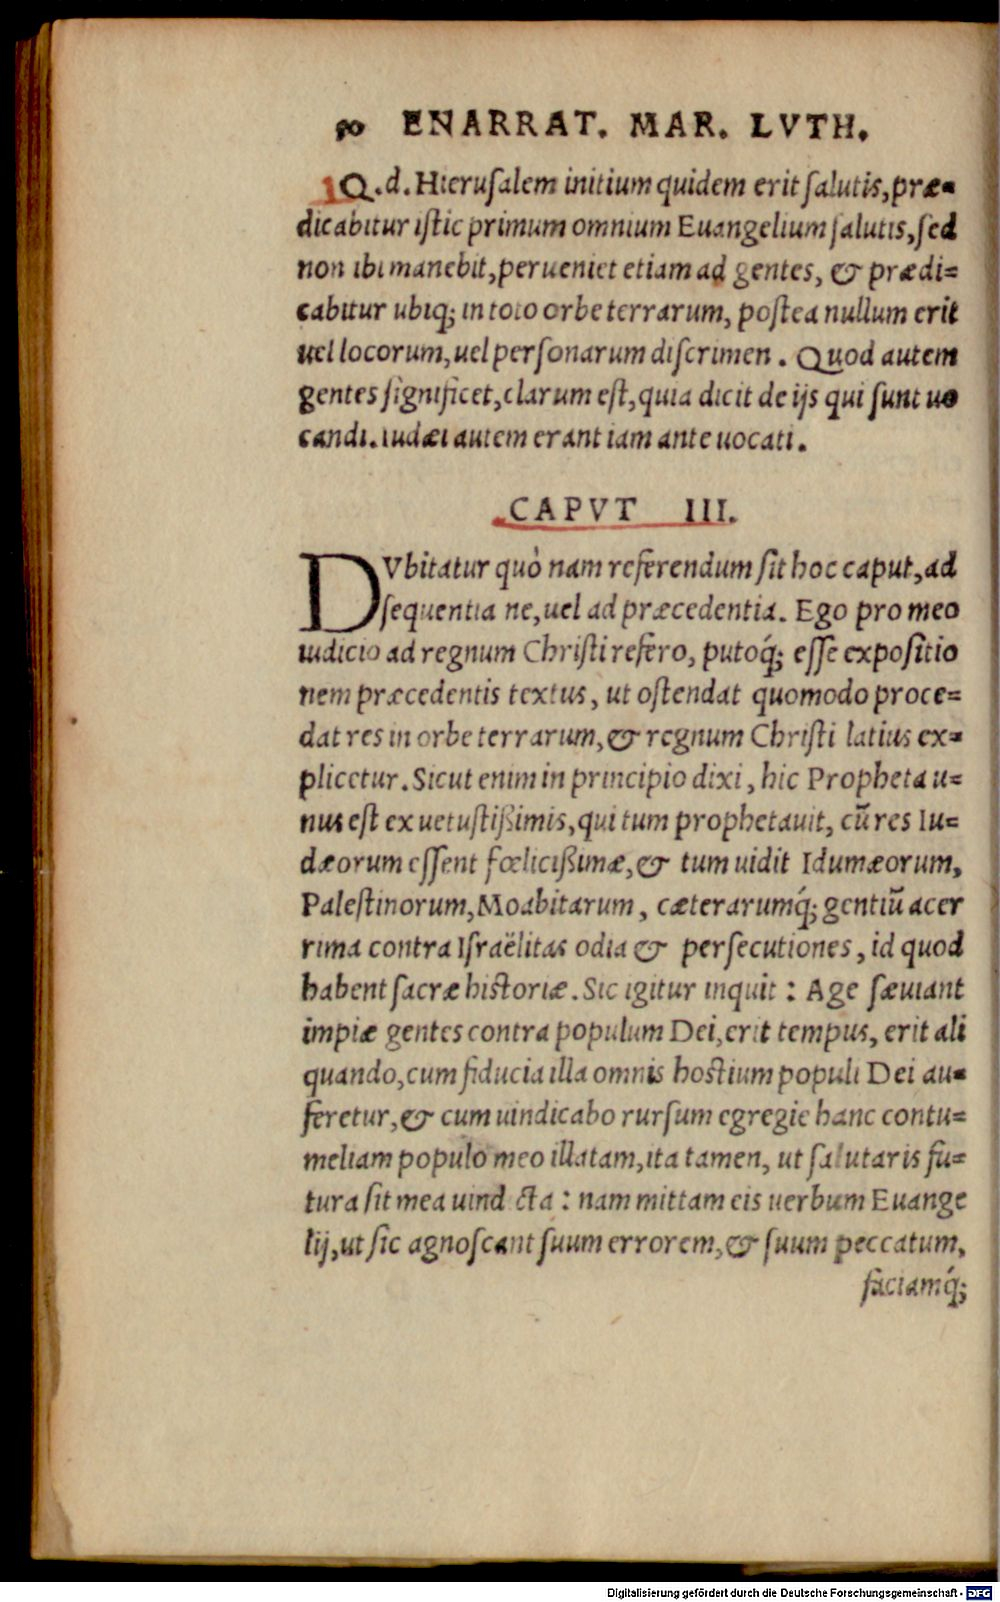 90 ENARRAT. MAR. LVTH.
Q.d. Hierusalem initium quidem erit salutis, præ=
dicabitur istic primum omnium Euangelium salutis, sed
non ibi manebit, perueniet etiam ad gentes, & prædi=
cabitur ubiq; in toto orbe terrarum, postea nullum erit
uel locorum, uel personarum discrimen. Quod autem
gentes significet, clarum est, quia dicit de ijs qui sunt uo
candi. Iudæi autem erant iam ante uocati.
CAPVT III.
DVbitatur quò nam referendum sit hoc caput, ad
sequentia ne, uel ad præcedentia. Ego pro meo
iudicio ad regnum Christi refero, putoq́; esse expositio
nem præcedentis textus, ut ostendat quomodo proce=
dat res in orbe terrarum, & regnum Christi latius ex=
plicetur. Sicut enim in principio dixi, hic Propheta u=
nus est ex uetustißimis, qui tum prophetauit, cū res Iu=
dæorum essent fœlicißimæ, & tum uidit Idumæorum,
Palestinorum, Moabitarum, cæterarumq́; gentiū acer
rima contra Israëlitas odia & persecutiones, id quod
habent sacræ historiæ. Sic igitur inquit: Age sæuiant
impiæ gentes contra populum Dei, erit tempus, erit ali
quando, cum fiducia illa omnis hostium populi Dei au=
feretur, & cum uindicabo rursum egregie hanc contu=
meliam populo meo illatam, ita tamen, ut salutaris fu=
tura sit mea uind cta: nam mittam eis uerbum Euange
lij, ut sic agnoscant suum errorem, & suum peccatum,
faciamq́;
Digitalisierung gefördert durch die Deutsche Forschungsgemeinschaft - DFG